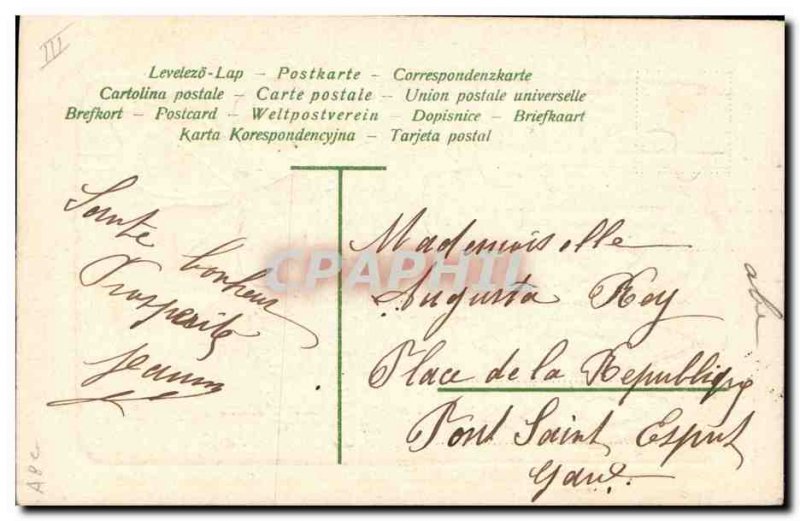 III
Levelező-Lap – Postkarte – Correspondenzkarte
Cartolina postale – Carte postale – Union postale universelle
Brefkort – Postcard – Weltpostverein – Dopisnice – Briefkaart
Karta Korespondencyjna – Tarjeta postal
Sante
bonheur
Prosperite
Jeanne
Mademoiselle
Augusta Rey
Place de la Republique
Pont Saint Esprit
Gard
CPAPHIL